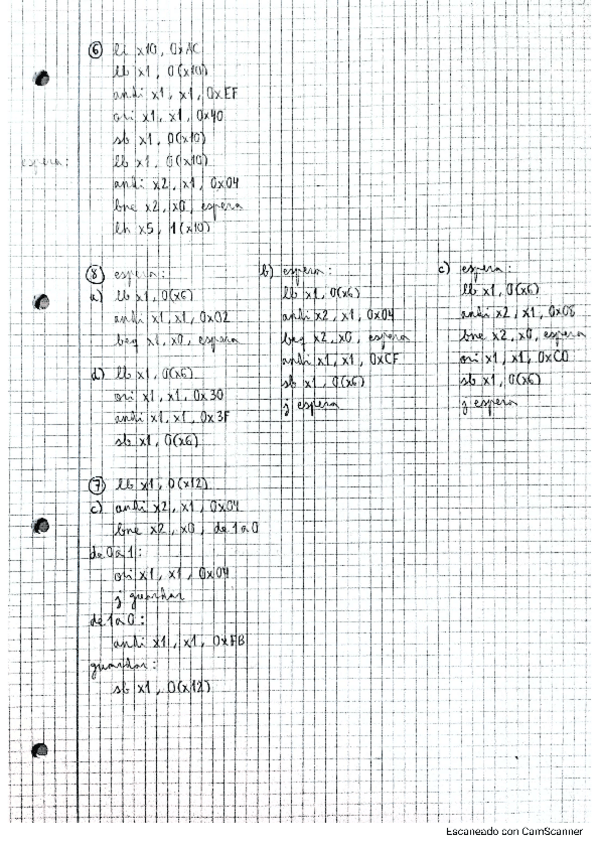 ⑥ li x10, 0xAC
lb x1, 0(x10)
andi x1, x1, 0xEF
ori x1, x1, 0x40
sb x1, 0(x10)
espera: lb x1, 0(x10)
andi x2, x1, 0x04
bne x2, x0, espera
lh x5, 1(x10)
⑧ espera:
a) lb x1, 0(x6)
andi x1, x1, 0x02
beq x1, x0, espera
b) espera:
lb x1, 0(x6)
andi x2, x1, 0x04
beq x2, x0, espera
andi x1, x1, 0xCF
sb x1, 0(x6)
j espera
c) espera:
lb x1, 0(x6)
andi x2, x1, 0x08
bne x2, x0, espera
ori x1, x1, 0xC0
sb x1, 0(x6)
j espera
d) lb x1, 0(x6)
ori x1, x1, 0x30
andi x1, x1, 0x3F
sb x1, 0(x6)
⑦ lb x1, 0(x12)
c) andi x2, x1, 0x04
bne x2, x0, de1a0
de0a1:
ori x1, x1, 0x04
j guardar
de1a0:
andi x1, x1, 0xFB
guardar:
sb x1, 0(x12)
Escaneado con CamScanner